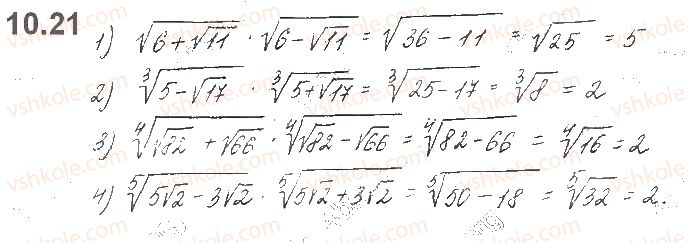 10.21
1) √(6+√11) · √(6−√11) = √(36−11) = √25 = 5
2) ∛(5−√17) · ∛(5+√17) = ∛(25−17) = ∛8 = 2
3) ∜(√82+√66) · ∜(√82−√66) = ∜(82−66) = ∜16 = 2
4) ⁵√(5√2−3√2) · ⁵√(5√2+3√2) = ⁵√(50−18) = ⁵√32 = 2.
vshkole.com